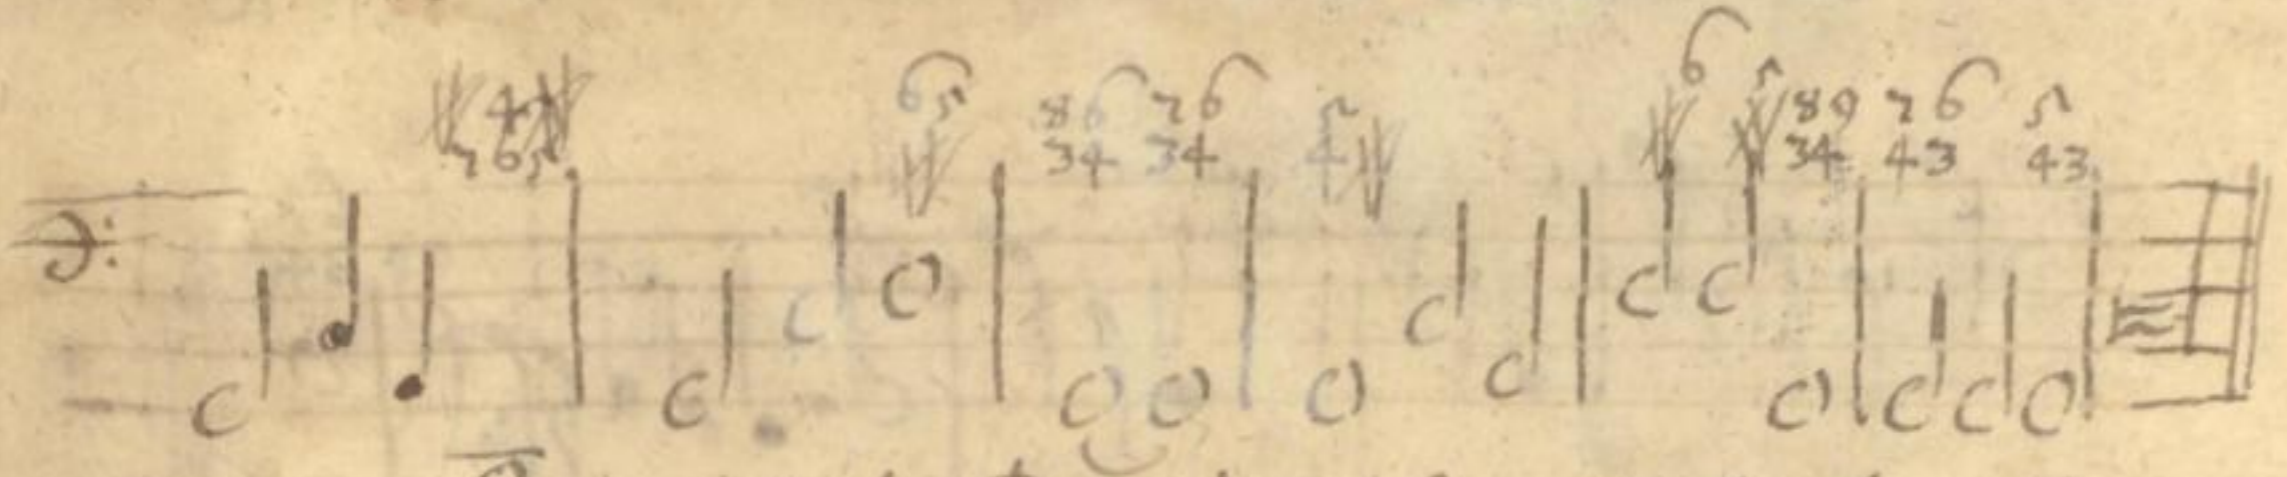 4
7 6 5
6 5
8 6 7 6
3 4 3 4
5
4
6 5 8 9 7 6 5
3 4 4 3 4 3